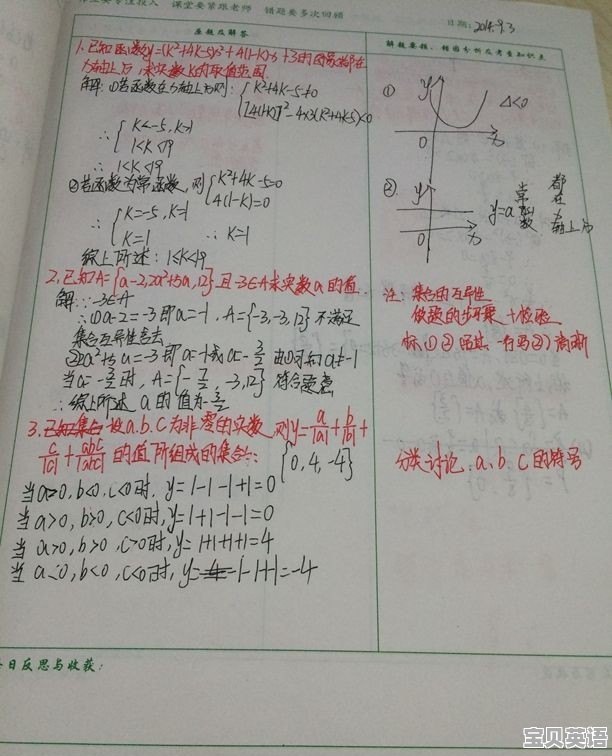 专注投入 课堂要紧跟老师 错题要多次回顾
日期: 2014.9.3
原题及解答
解题要领、错因分析及考查知识点
1.已知函数y=(k²+4k-5)x²+4(1-k)x+3的图象都在
x轴上方,求实数k的取值范围.
解:①若函数在x轴上方则:{k²+4k-5≠0
[4(1-k)]²-4×3(k²+4k-5)<0
∴{k≠-5,k≠1
1<k<19
∴1<k<19
②若函数为常函数,则{k²+4k-5=0
4(1-k)=0
∴{k=-5,k=1
k=1 ∴k=1
综上所述:1≤k<19
① y x 0 Δ<0
② y x 0 y=a 常函数 都在x轴上方
2.已知A={a-2,2a²+5a,12}且-3∈A求实数a的值.
解:∵-3∈A
∴①a-2=-3即a=-1,A={-3,-3,12}不满足
集合互异性舍去
②2a²+5a=-3即a=-1或a=-3/2 由①可知a≠-1
当a=-3/2时,A={-7/2,-3,12}符合题意
∴综上所述a的值为-3/2
注:集合的互异性
做题的步骤+检验
标①②
3.已知集合设a.b.c为非零的实数则y=a/|a|+b/|b|+
c/|c|+abc/|abc|的值所组成的集合:
{0,4,-4}
当a>0,b<0,c<0时,y=1-1-1+1=0
当a>0,b>0,c<0时,y=1+1-1-1=0
当a>0,b>0,c>0时,y=1+1+1+1=4
当a<0,b<0,c<0时,y=-4-1-1+1=-4
分类讨论.a、b、c的符号
日反思与收获:
宝贝英语